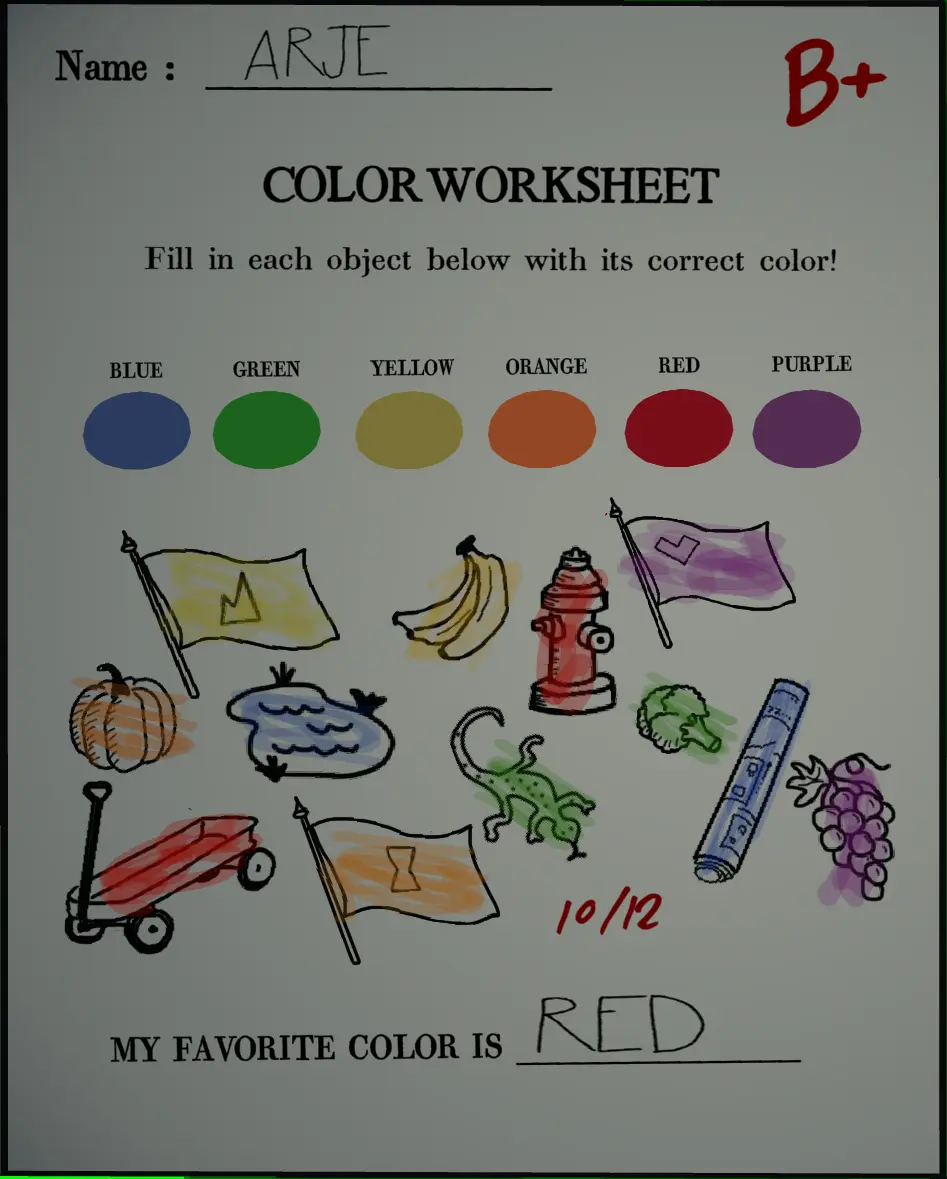 Name : ARJE
B+
COLOR WORKSHEET
Fill in each object below with its correct color!
BLUE GREEN YELLOW ORANGE RED PURPLE
10/12
MY FAVORITE COLOR IS RED